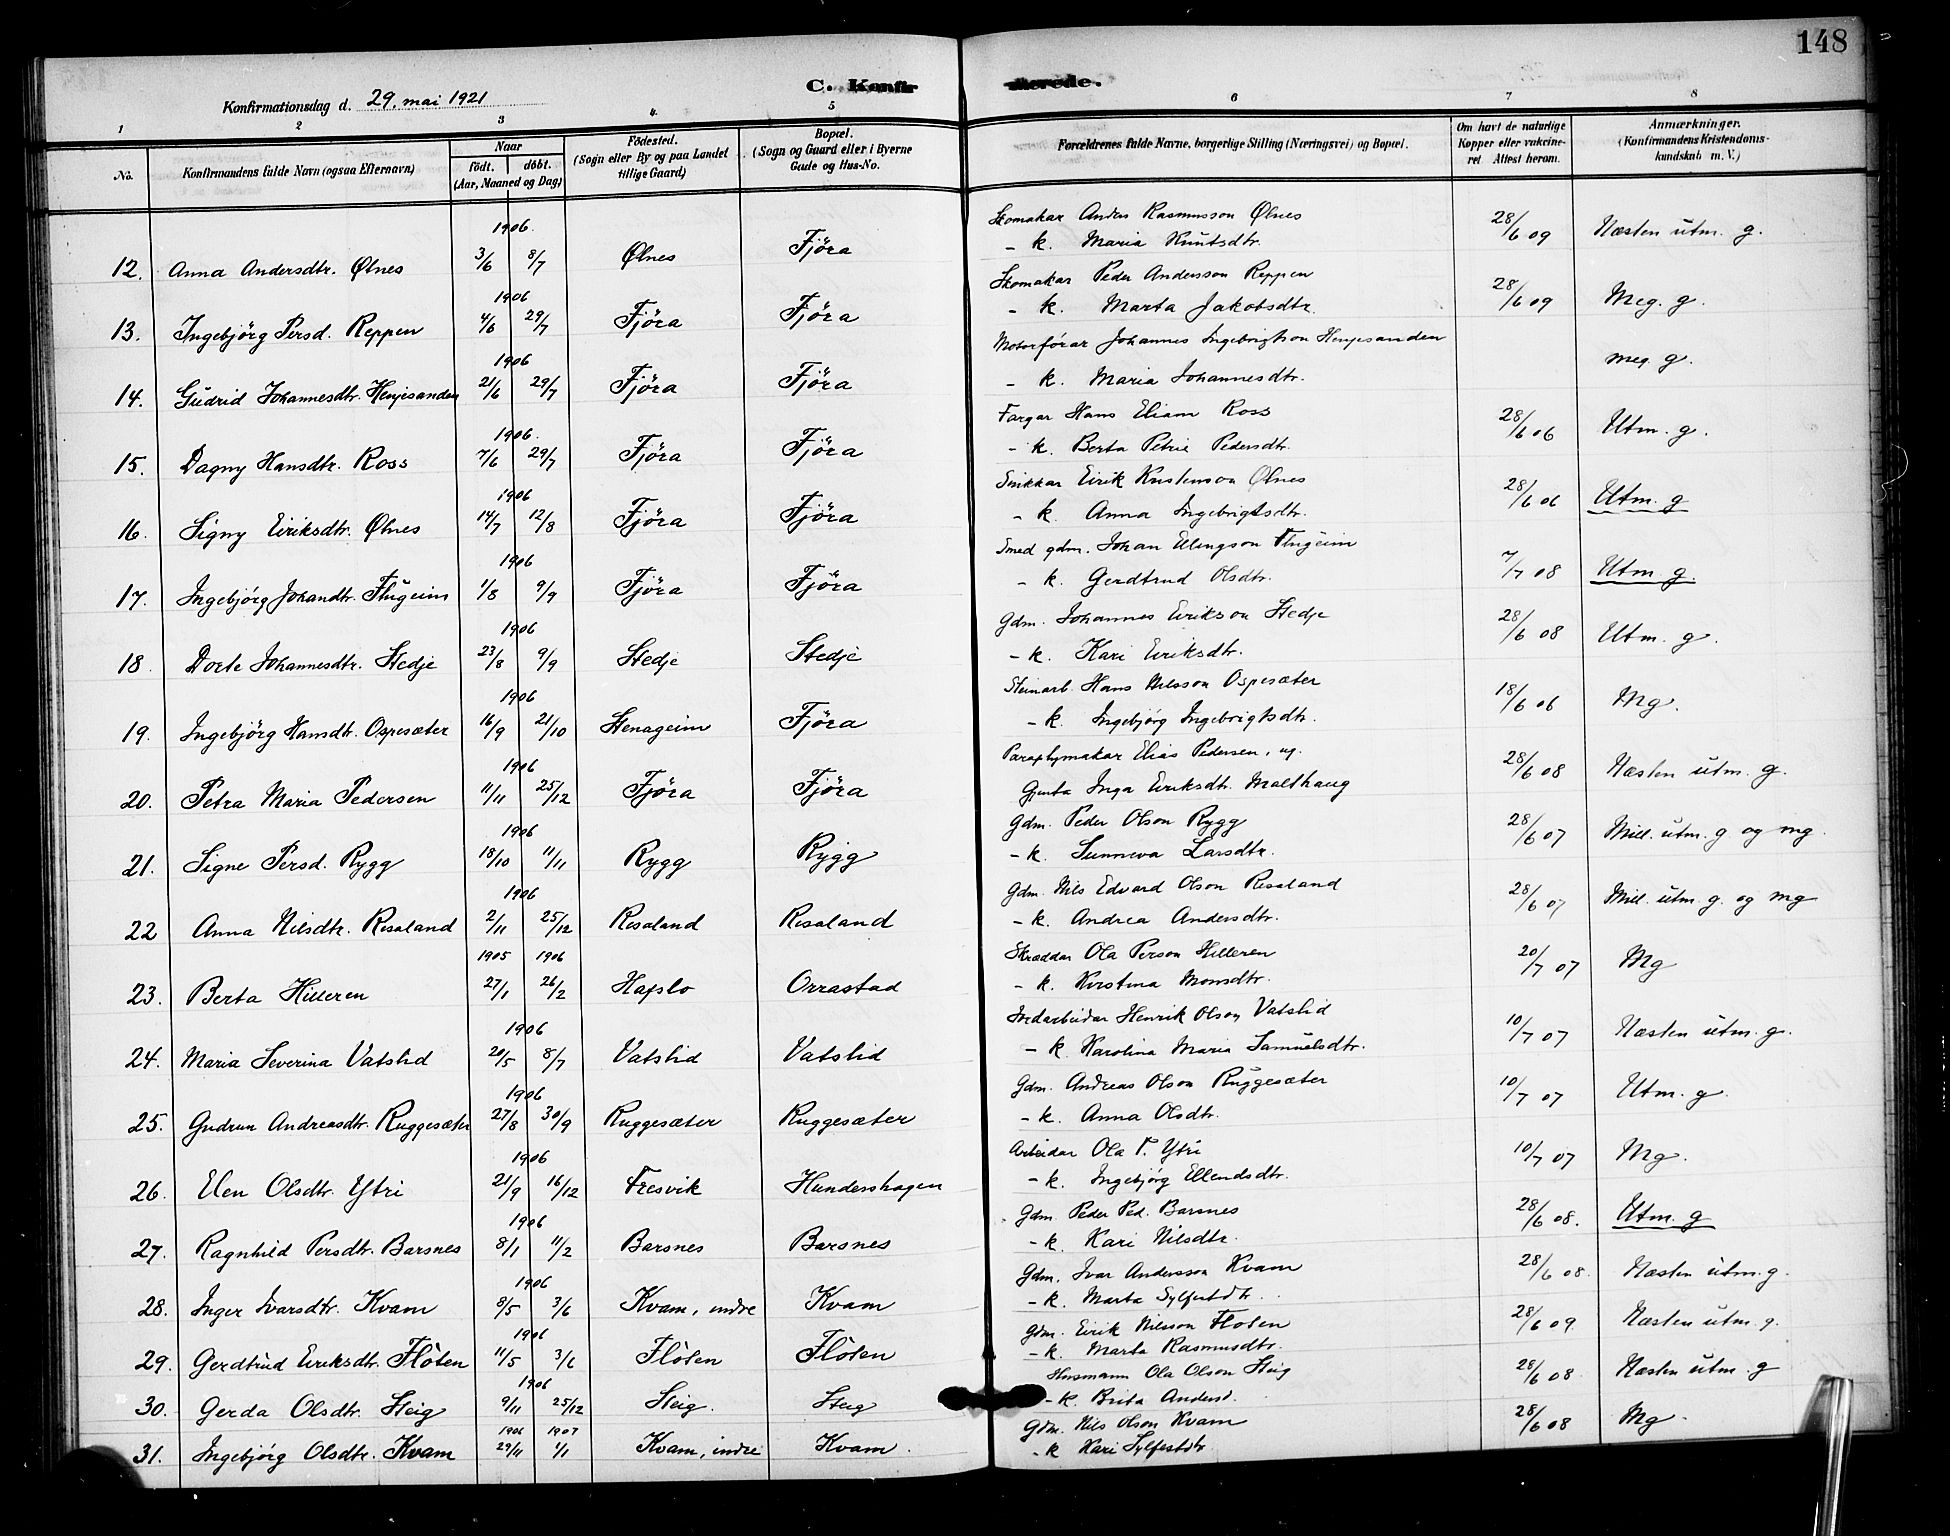 148
C. Konfirmerede.
Konfirmationsdag d. 29. mai 1921
1 2 3 4 5 6 7 8
No.
Konfirmandens fulde Navn (ogsaa Efternavn)
Naar
født. døbt.
(Aar, Maaned og Dag)
Fødested.
(Sogn eller By og paa Landet
tillige Gaard)
Bopæl.
(Sogn og Gaard eller i Byerne
Gade og Hus-No.
Forældrenes fulde Navne, borgerlige Stilling (Næringsvei) og Bopæl.
Om havt de naturlige
Kopper eller vakcine-
ret. Attest herom.
Anmærkninger.
(Konfirmandens Kristendoms-
kundskab m. V.)
1906.
12. Anna Andersdtr. Ølnes 3/6 8/7 Ølnes Fjöra Skomakar Anders Rasmusson Ølnes 28/6 09 Næsten utm. g.
- k. Maria Knutsdtr.
1906
13. Ingebjörg Persd. Reppen 4/6 29/7 Fjöra Fjöra Skomakar Peder Andersson Reppen 28/6 09 Meg. g.
- k. Marta Jakobsdtr.
1906
14. Gudrid Johannesdtr. Henjesanden 21/6 29/7 Fjöra Fjöra Motorförar Johannes Ingebrigtson Henjesanden meg. g.
- k. Maria Johannesdtr.
1906.
15. Dagny Hansdtr. Ross 7/6 29/7 Fjöra Fjöra Fargar Hans Eliam Ross 28/6 06 Utm. g.
- k. Berta Petrie Pedersdtr.
1906
16. Signy Eiriksdtr. Ølnes 14/7 12/8 Fjöra Fjöra Snikkar Eirik Kristenson Ølnes 28/6 06 Utm. g
- k. Anna Ingebrigtsdtr.
1906
17. Ingebjörg Johandtr. Flugeim 1/8 9/9 Fjöra Fjöra Smed gdm. Johan Ellingson Flugeim 7/7 08 Utm g.
- k. Gerdtrud Olsdtr.
1906
18. Dorte Johannesdtr. Stedje 23/8 9/9 Stedje Stedje Gdm. Johannes Eirikson Stedje 28/6 08 Utm. g.
- k. Kari Eiriksdtr.
1906
19. Ingebjörg Hansdtr. Ospesæter 16/9 21/10 Stenageim Fjöra Steinarb. Hans Nilsson Ospesæter 18/6 06 Mg.
- k. Ingebjörg Ingebrigtsdtr.
1906
20. Petra Maria Pedersen 11/11 25/12 Fjöra Fjöra Paraplymakar Elias Pedersen, ug. 28/6 08 Næsten utm. g.
Gjenta Inga Eiriksdtr. Malthaug
1906
21. Signe Persd. Rygg 18/10 11/11 Rygg Rygg Gdm. Peder Olson Rygg 28/6 07 Mill. utm. g og mg.
- k. Sunneva Larsdtr.
1906
22 Anna Nilsdtr. Resaland 2/11 25/12 Resaland Resaland Gdm. Nils Edvard Olson Resaland 28/6 07 Mill. utm. g. og mg
- k. Andrea Andersdtr.
1905 1906
23. Berta Hilleren 27/1 26/2 Hafslo Orrastad Skræddar Ola Person Hilleren 20/7 07 Mg
- k. Kirstina Monsdtr.
1906
24. Maria Severina Vatslid 20/5 8/7 Vatslid Vatslid Jordarbeidar Henrik Olson Vatslid 10/7 07 Næsten utm. g.
- k. Karolina Maria Samuelsdtr.
1906
25. Gudrun Andreasdtr. Ruggesæter 27/8 30/9 Ruggesæter Ruggesæter Gdm. Andreas Olson Ruggesæter 10/7 07 Utm. g.
- k. Anna Olsdtr.
1906
26. Elen Olsdtr. Ytri 21/9 16/12 Fresvik Hundershagen Arbeidar Ola T. Ytri 10/7 07 Mg.
- k. Ingebjörg Ellendsdtr.
1906
27. Ragnhild Persdtr. Barsnes 8/1 11/2 Barsnes Barsnes Gdm. Peder Ped. Barsnes 28/6 08. Utm. g
- k. Kari Nilsdtr.
1906
28. Inger Ivarsdtr. Kvam 8/5 3/6 Kvam, indre Kvam Gdm. Ivar Andersson Kvam 28/6 08. Næsten utm. g.
- k. Marta Sylfestdtr.
1906
29. Gerdtrud Eiriksdtr. Flöten 11/5 3/6 Flöten Flöten Gdm. Eirik Nilsson Flöten 28/6 09. Næsten utm. g.
- k. Marta Rasmusdtr.
1906
30. Gerda Olsdtr. Steig 9/11 25/12 Steig. Steig Husmann Ola Olson Steig 28/6 08 Næsten utm. g
- k. Brita Andersd.
1906 1907
31. Ingebjörg Olsdtr. Kvam 29/11 1/1 Kvam, indre Kvam. Gdm. Nils Olson Kvam 28/6 08 Mg.
- k Kari Sylfestdtr